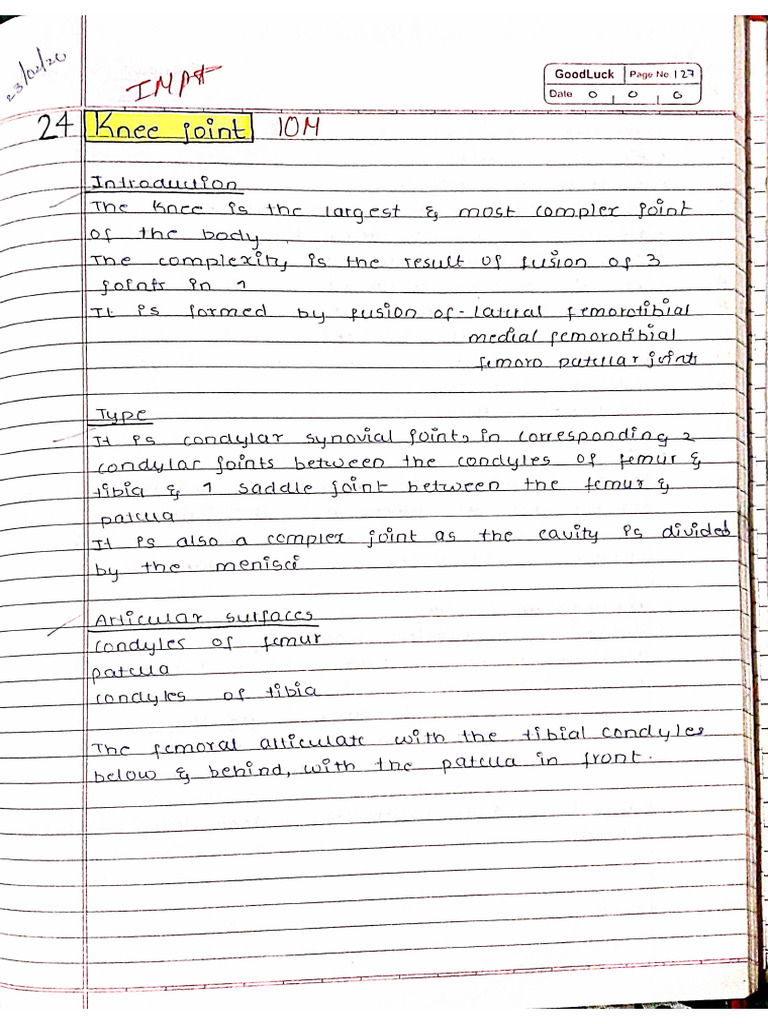 23/02/20
IMPT
GoodLuck Page No 127
Date 0 0 0
24 Knee joint 10M
Introduction
The Knee is the largest & most complex joint
of the body
The complexity is the result of fusion of 3
joints in 1
It is formed by fusion of - lateral femorotibial
medial femorotibial
femoro patellar joints
Type
It is condylar synovial joint, in corresponding 2
condylar joints between the condyles of femur &
tibia & 1 saddle joint between the femur &
patella
It is also a complex joint as the cavity is divided
by the menisci
Articular surfaces
condyles of femur
patella
condyles of tibia
The femoral articulate with the tibial condyles
below & behind, with the patella in front.